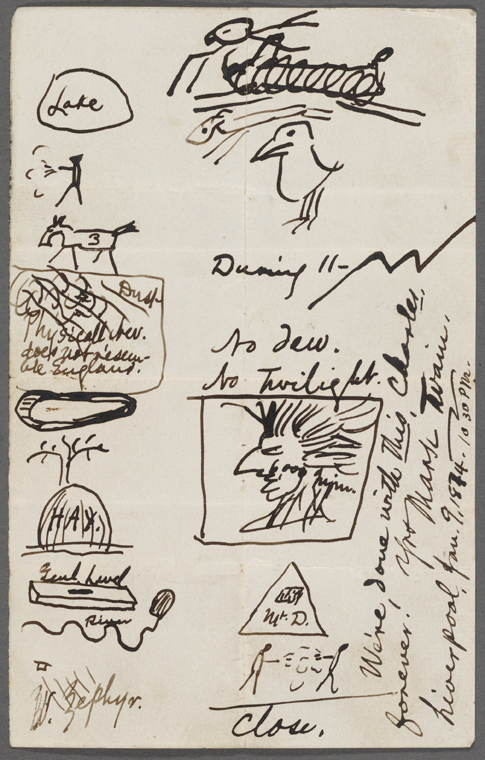 Lake
3
Dusk
Physically Nev.
does not resem-
ble England.
HAY.
Level
River
W. Zephyr.
During 11-
No dew.
No Twilight.
Mt. D.
Close.
We're done with this, Charles,
forever! Yrs Mark Twain.
Liverpool, Jan. 9, 1874. 10 30 P.M.